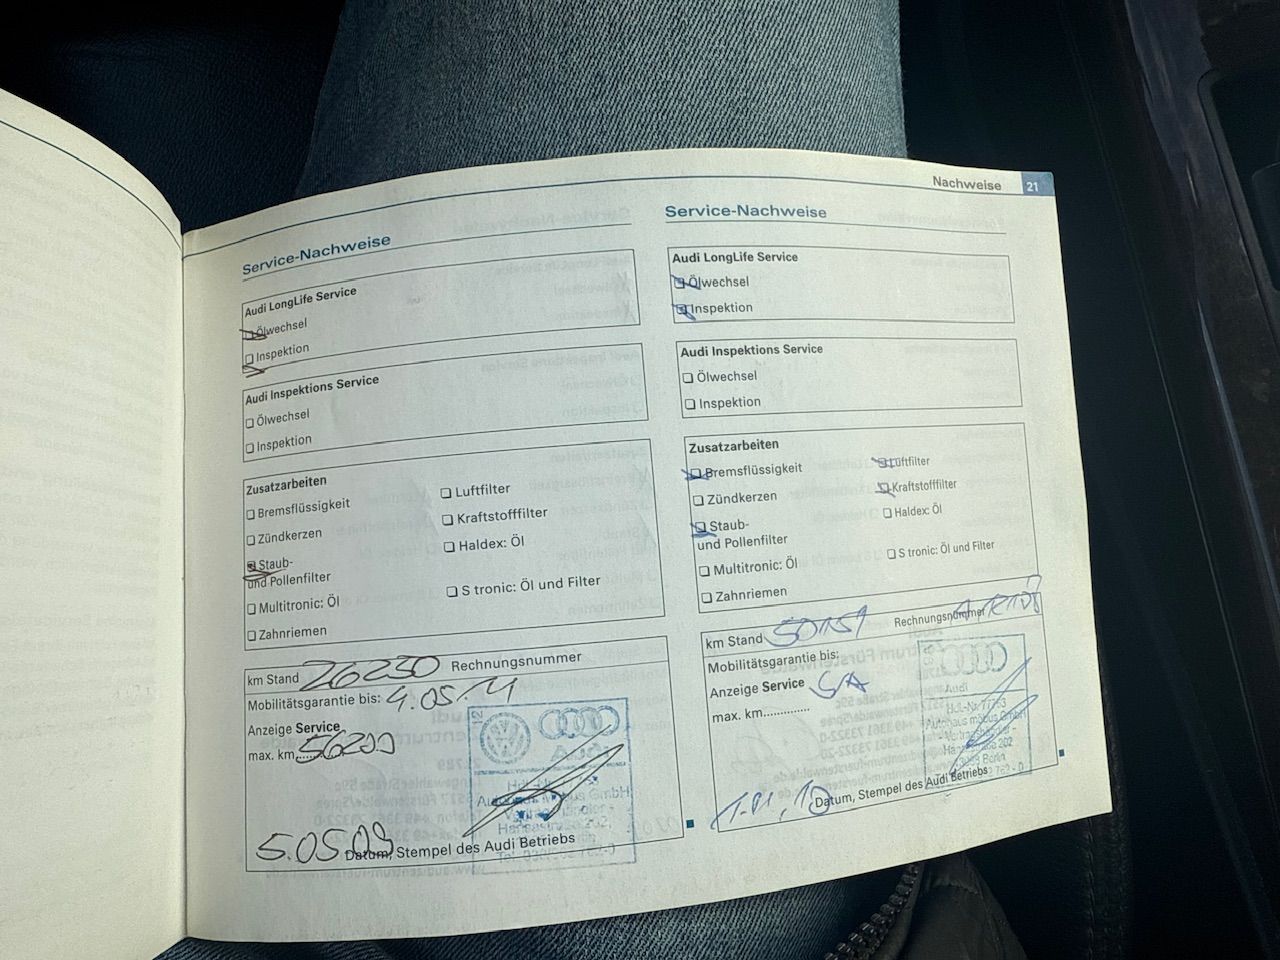 Nachweise 21
Service-Nachweise
Audi LongLife Service
Ölwechsel
Inspektion
Audi Inspektions Service
Ölwechsel
Inspektion
Zusatzarbeiten
Bremsflüssigkeit
Zündkerzen
Staub-
und Pollenfilter
Multitronic: Öl
Zahnriemen
Luftfilter
Kraftstofffilter
Haldex: Öl
S tronic: Öl und Filter
km Stand 26250 Rechnungsnummer
Mobilitätsgarantie bis: 4.05.11
Anzeige Service
max. km...... 56200
5.05.09
Datum, Stempel des Audi Betriebs
Service-Nachweise
Audi LongLife Service
Ölwechsel
Inspektion
Audi Inspektions Service
Ölwechsel
Inspektion
Zusatzarbeiten
Bremsflüssigkeit
Zündkerzen
Staub-
und Pollenfilter
Multitronic: Öl
Zahnriemen
Luftfilter
Kraftstofffilter
Haldex: Öl
S tronic: Öl und Filter
km Stand 50151 Rechnungsnummer
Mobilitätsgarantie bis:
Anzeige Service
max. km..............
Audi
Autohaus GmbH
202
Berlin
Datum, Stempel des Audi Betriebs